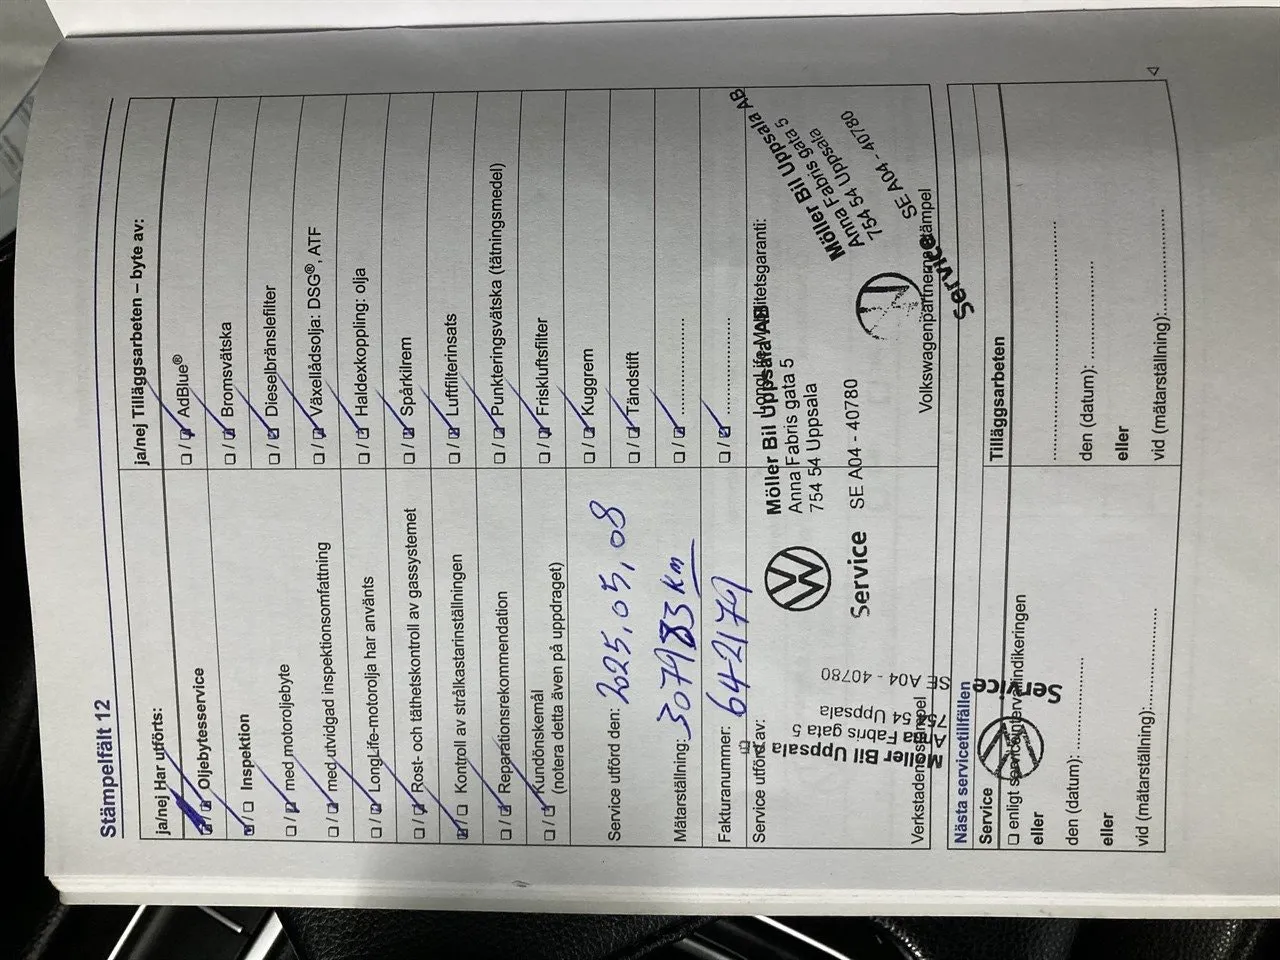 Stämpelfält 12
ja/nej Har utförts:
Oljebytesservice
Inspektion
med motoroljebyte
med utvidgad inspektionsomfattning
LongLife-motorolja har använts
Rost- och täthetskontroll av gassystemet
Kontroll av strålkastarinställningen
Reparationsrekommendation
Kundönskemål
(notera detta även på uppdraget)
ja/nej Tilläggsarbeten – byte av:
AdBlue®
Bromsvätska
Dieselbränslefilter
Växellådsolja: DSG®, ATF
Haldexkoppling: olja
Spårkilrem
Luftfilterinsats
Punkteringsvätska (tätningsmedel)
Friskluftsfilter
Kuggrem
Tändstift
Service utförd den: 2025.05.08
Mätarställning: 307983 km
Fakturanummer:
Service utförd av:
Möller Bil Uppsala AB
Anna Fabris gata 5
754 54 Uppsala
Service SE A04 - 40780
Möller Bil Uppsala AB
Anna Fabris gata 5
754 54 Uppsala
SE A04 - 40780
Service
Möller Bil Uppsala AB
Anna Fabris gata 5
754 54 Uppsala
SE A04 - 40780
Service
Verkstadens stämpel
Volkswagenpartnerns stämpel
Nästa servicetillfällen
Service
enligt serviceintervallindikeringen
eller
den (datum):
eller
vid (mätarställning):
Tilläggsarbeten
den (datum):
eller
vid (mätarställning):